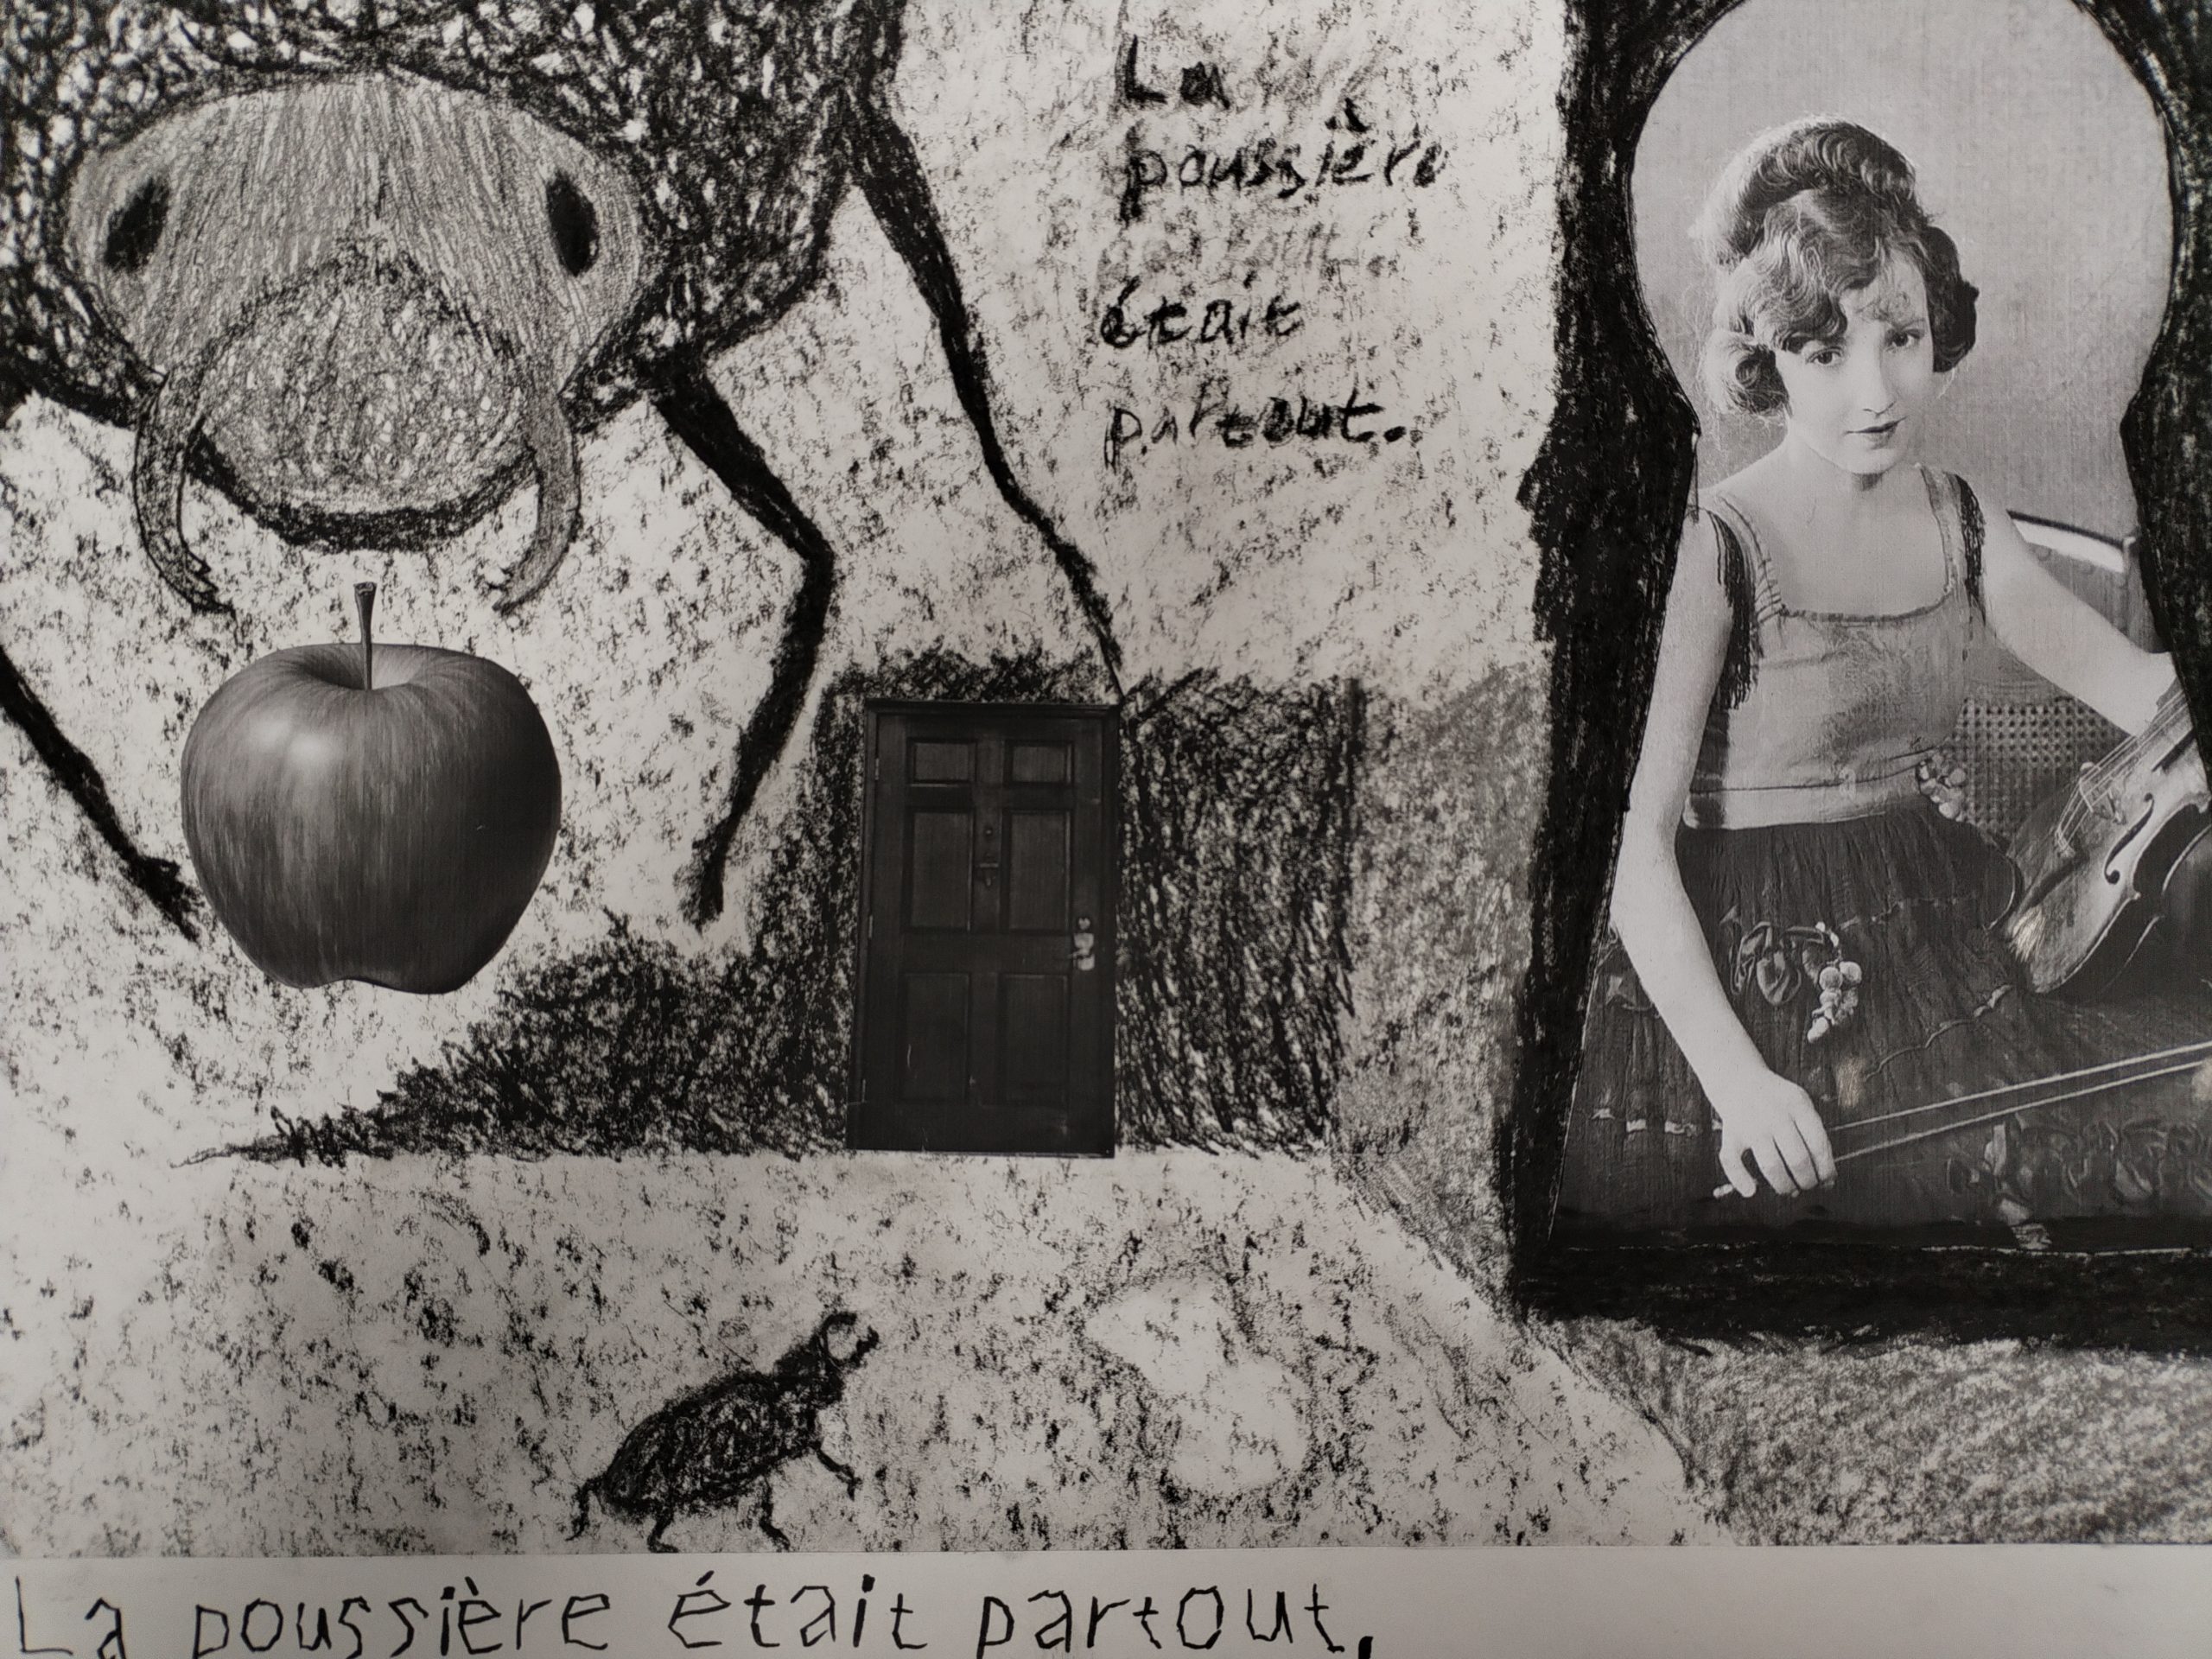 La
poussière
était
partout.
La poussière était partout.